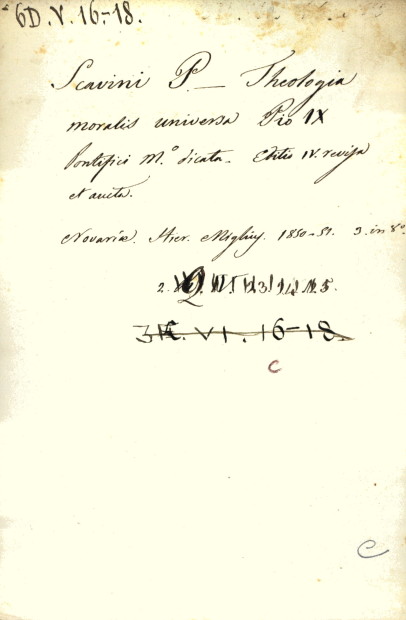 6D.V.16-18.
Scavini P — Theologia
moralis universa Pio IX
Pontifici M.º dicata. Editio IV. revisa
et aucta.
Novariæ. Hier. Miglius. 1850-51. 3. in 8º
3K.VI.16-18.
C
C